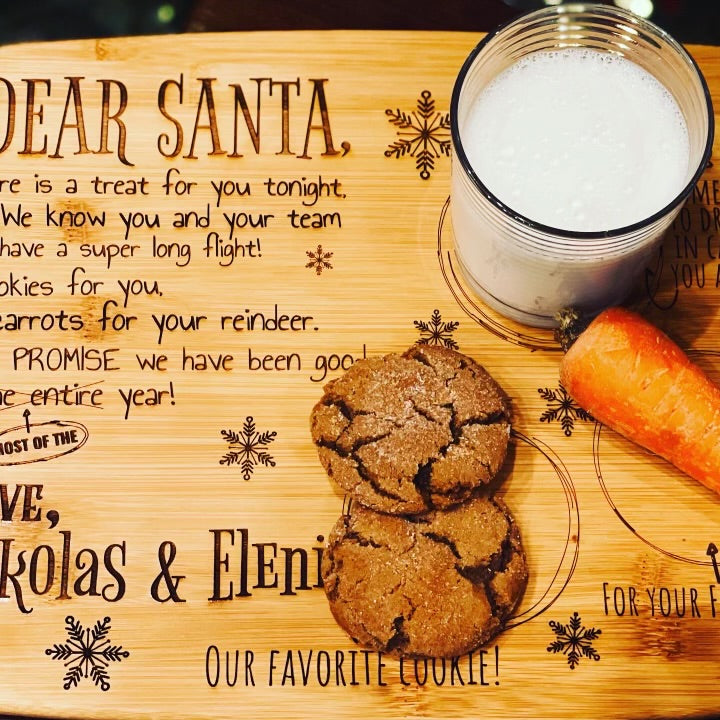 DEAR SANTA,
re is a treat for you tonight.
We know you and your team
have a super long flight!
okies for you,
carrots for your reindeer.
PROMISE we have been good
he entire year!
MOST OF THE
VE,
kolas & Eleni
OUR FAVORITE COOKIE!
ME
TO DR
IN CA
YOU A
FOR YOUR F